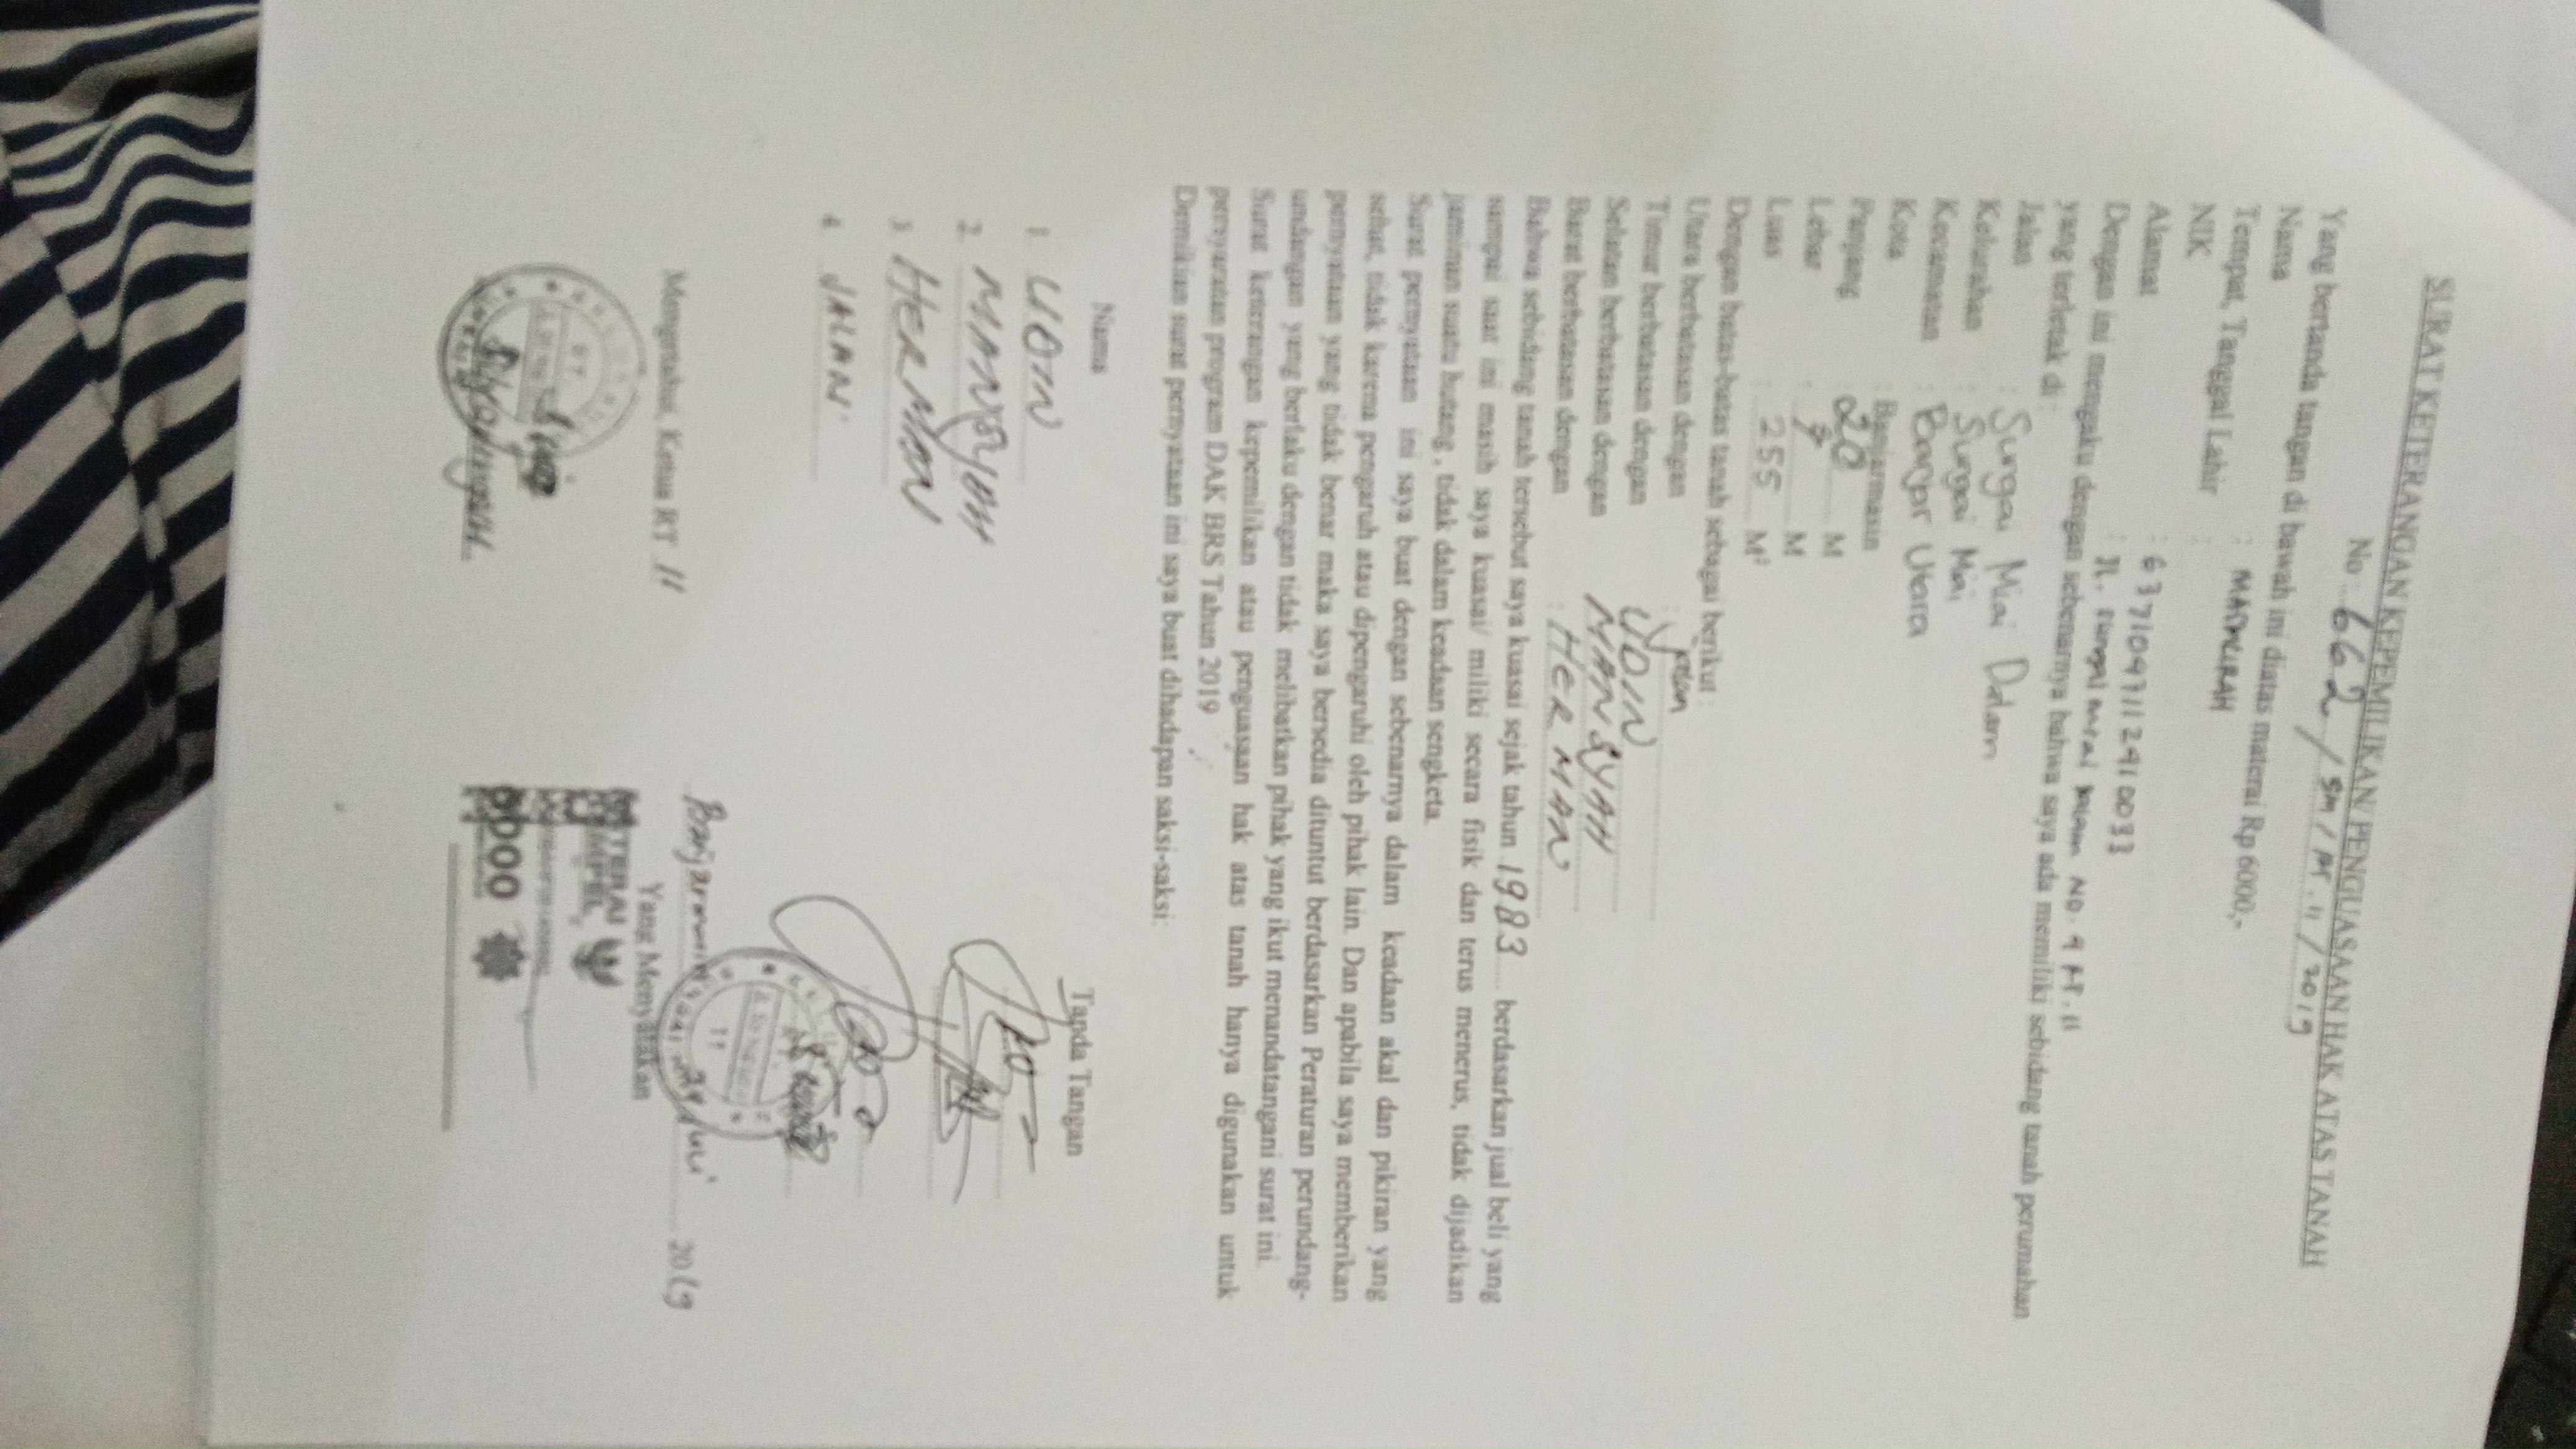 SURAT KETERANGAN KEPEMILIKAN PENGUASAAN HAK ATAS TANAH
No : 662 / SM / RT.11 / 2019
Yang bertanda tangan di bawah ini diatas materai Rp 6000,-
Nama : MASNURAH
Tempat, Tanggal Lahir :
NIK : 6371047112410033
Alamat : Jl. Sungai Miai Dalam NO. 9 RT. 11
Dengan ini mengaku dengan sebenarnya bahwa saya ada memiliki sebidang tanah perumahan
yang terletak di :
Jalan : Sungai Miai Dalam
Kelurahan : Sungai Miai
Kecamatan : Banjar Utara
Kota : Banjarmasin
Panjang : 20 M
Lebar : M
Luas : 255 M²
Dengan batas-batas tanah sebagai berikut :
Utara berbatasan dengan : jalan
Timur berbatasan dengan : UDIN
Selatan berbatasan dengan : MANSYAH
Barat berbatasan dengan : HERMAN
Bahwa sebidang tanah tersebut saya kuasai sejak tahun 1983 berdasarkan jual beli yang
sampai saat ini masih saya kuasai/ miliki secara fisik dan terus menerus, tidak dijadikan
jaminan suatu hutang , tidak dalam keadaan sengketa.
Surat pernyataan ini saya buat dengan sebenarnya dalam keadaan akal dan pikiran yang
sehat, tidak karena pengaruh atau dipengaruhi oleh pihak lain. Dan apabila saya memberikan
pernyataan yang tidak benar maka saya bersedia dituntut berdasarkan Peraturan perundang-
undangan yang berlaku dengan tidak melibatkan pihak yang ikut menandatangani surat ini.
Surat keterangan kepemilikan atau penguasaan hak atas tanah hanya digunakan untuk
persyaratan program DAK BRS Tahun 2019
Demikian surat pernyataan ini saya buat dihadapan saksi-saksi:
Nama Tanda Tangan
1. UDIN
2. MANSYAH
3. HERMAN
4. JALAN
Banjarmasin 29 Juni 2019
Mengetahui, Ketua RT 11 Yang Menyatakan
METERAI
TEMPEL
6000